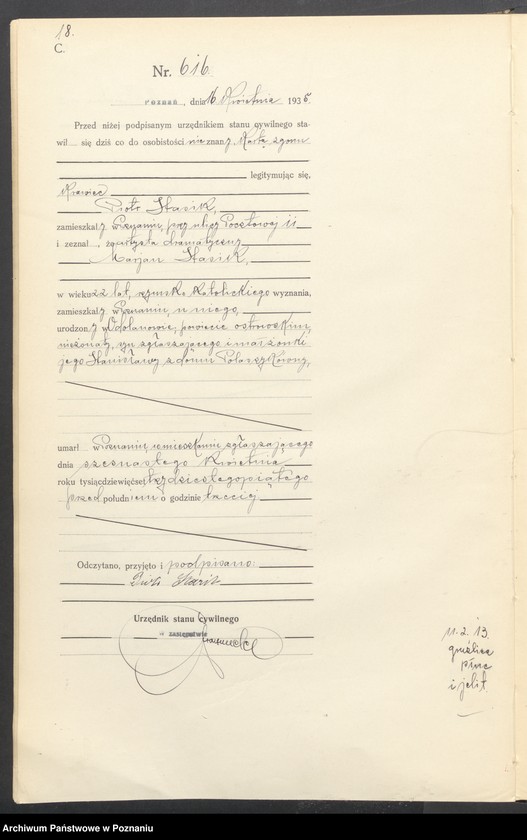 18.
C.
Nr. 616
Poznań, dnia 16 Kwietnia 1935.
Przed niżej podpisanym urzędnikiem stanu cywilnego sta-
wił się dziś co do osobistości nieznany Kartą zgonu
legitymując się,
Krawiec
Piotr Stasik,
zamieszkały w Poznaniu, przy ulicy Pocztowej 11
i zeznał, że artysta dramatyczny
Marjan Stasik,
w wieku 22 lat, rzymsko katolickiego wyznania,
zamieszkały w Poznaniu, u niego,
urodzony w powiecie ostrowskim,
nieżonaty, syn zgłaszającego i małżonki
jego Stanisławy z domu
umarł w Poznaniu, w mieszkaniu zgłaszającego
dnia szesnastego Kwietnia
roku tysiącdziewięćset trzydziestego piątego
przed południem o godzinie trzeciej
Odczytano, przyjęto i podpisano:
Piotr Stasik
Urzędnik stanu cywilnego
w zastępstwie
11. 2. 13.
gruźlica
płuc
i jelit.
Archiwum Państwowe w Poznaniu